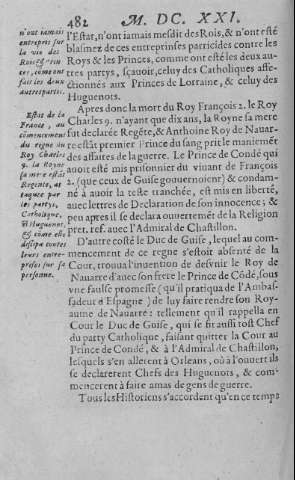 482 M. DC. XXI.
n'ont jamais
entrepris sur
la vie des
Rois & Princes, comme ont
fait les deux
autres partis.
l'Estat, n'ont jamais mesdit des Rois, & n'ont esté
blasmez de ces entreprinses parricides contre les
Roys & les Princes, comme ont esté les deux au-
tres partys, sçauoir, celuy des Catholiques affe-
ctionnés aux Princes de Lorraine, & celuy des
Huguenots.
Estat de la
France, au
commencement
du regne du
Roy Charles
9. la Royne
sa mere estāt
Regente, at-
taquee par
les partys,
Catholique,
& Huguenot,
& cōme elle
dissipa toutes
leurs entre-
prises sur sa
personne.
Apres donc la mort du Roy François 2. le Roy
Charles 9. n'ayant que dix ans, la Royne sa mere
fut declarée Regēte, & Anthoine Roy de Nauar-
re estāt premier Prince du sang prit le maniemēt
des affaires de la guerre. Le Prince de Condé qui
auoit esté mis prisonnier du viuant de François
2. (que ceux de Guise gouuernoient) & condam-
né à auoir la teste tranchée, est mis en liberté,
auec lettres de Declaration de son innocence; &
peu apres il se declara ouuertemēt de la Religion
pret. ref. auec l'Admiral de Chastillon.
D'autre costé le Duc de Guise, lequel au com-
mencement de ce regne s'estoit absenté de la
Cour, trouua l'inuention de desvnir le Roy de
Nauarre d'auec son frere le Prince de Cōdé, sous
vne faulse promesse (qu'il pratiqua de l'Ambas-
sadeur d'Espagne) de luy faire rendre son Roy-
aume de Nauarre: tellement qu'il rappella en
Cour le Duc de Guise, qui se fit aussi tost Chef
du party Catholique, faisant quitter la Cour au
Prince de Condé, & à l'Admiral de Chastillon,
lesquels s'en allerent à Orleans, où à l'ouuert ils
se declarerent Chefs des Huguenots, & com-
mencerent à faire amas de gens de guerre.
Tous les Historiens s'accordent qu'en ce temps